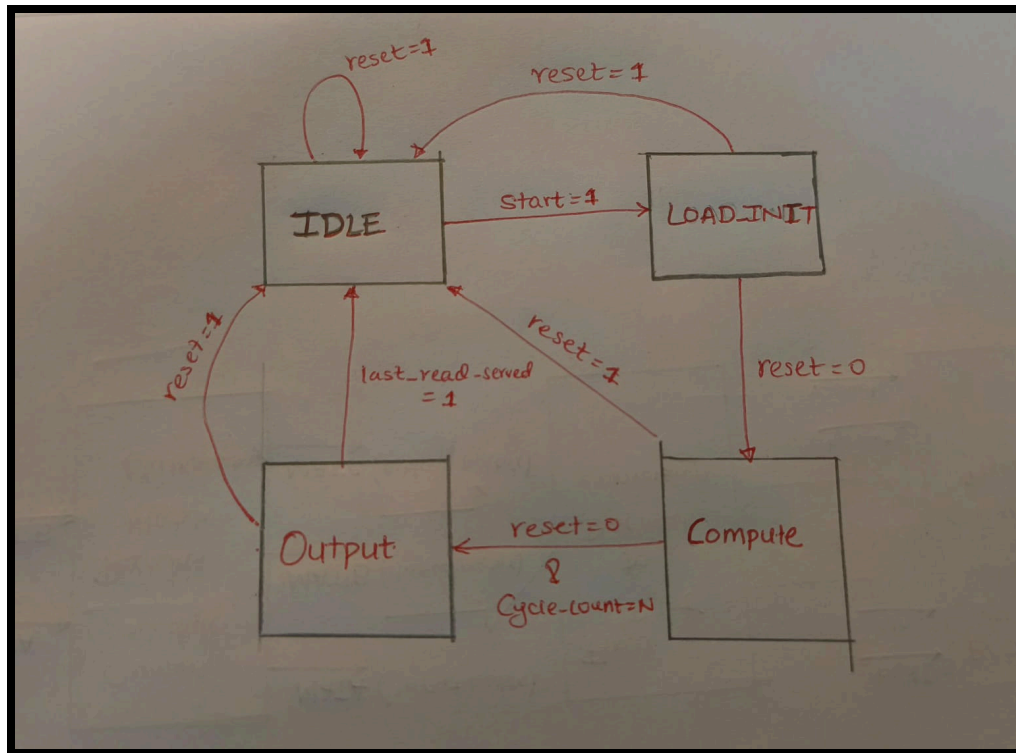 reset=1
reset=1
IDLE
start=1
LOAD_INIT
reset=1
reset=1
last_read_served
=1
reset=0
Output
reset=0
&
Cycle-count=N
Compute